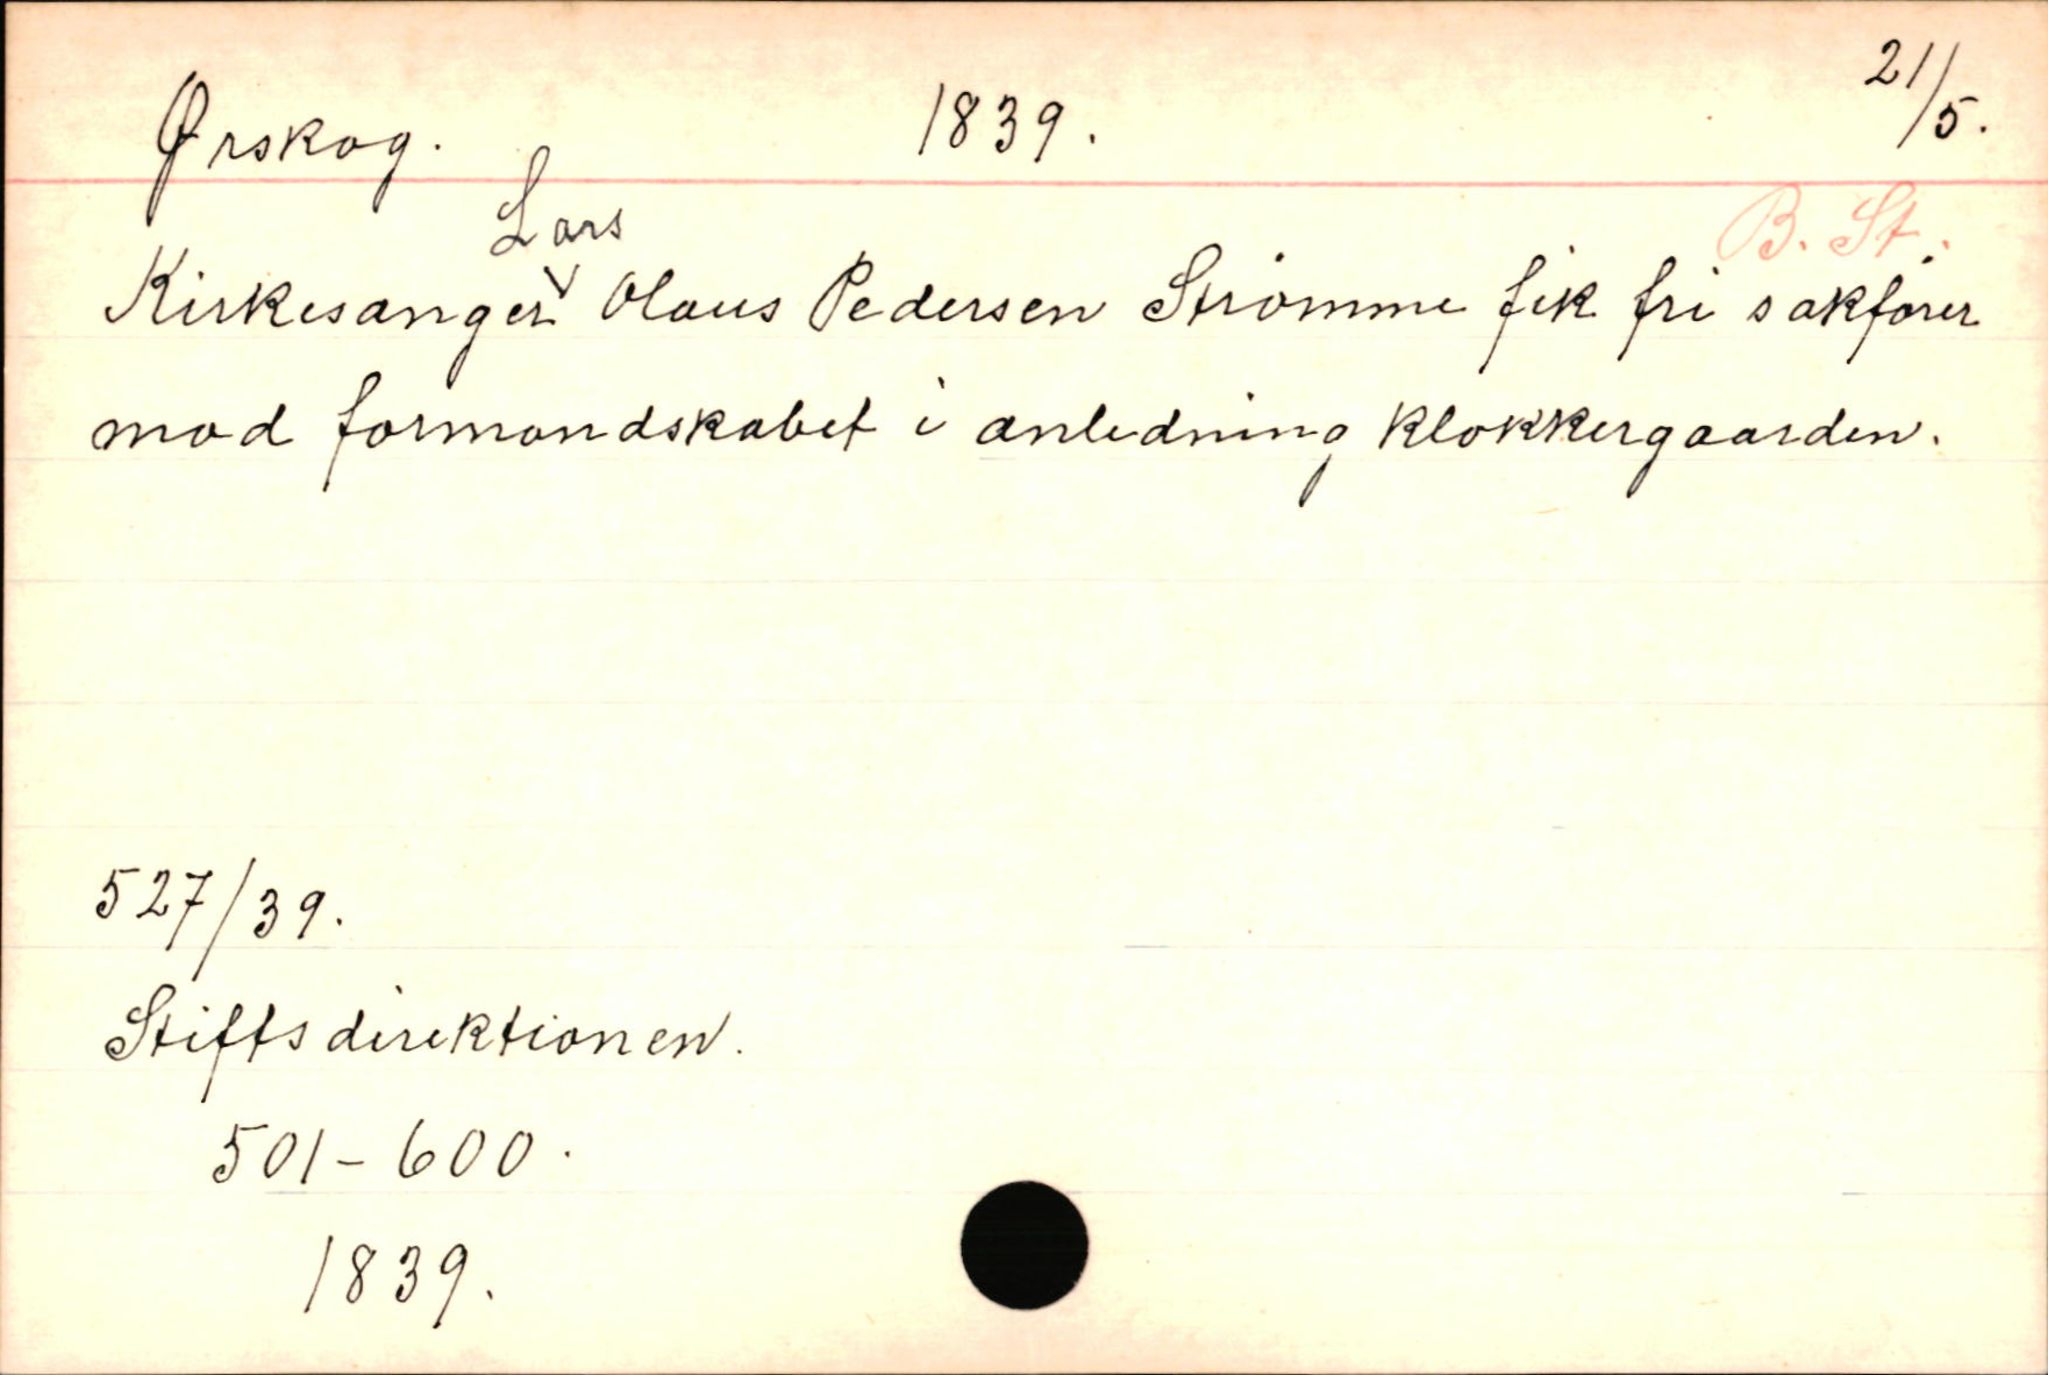 Ørskog. 1839. 21/5.
B. St.
Lars
Kirkesanger Olaus Pedersen Strømme fik fri sakfører
mod formandskabet i anledning klokkergaarden.
527/39.
Stiftsdirektionen.
501-600.
1839.